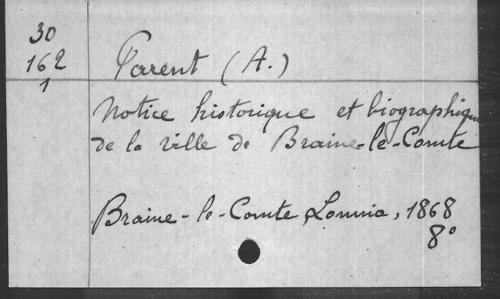 30
162
1
Parent (A.)
Notice historique et biographique
de la ville de Braine-le-Comte
Braine-le-Comte, 1868
8°